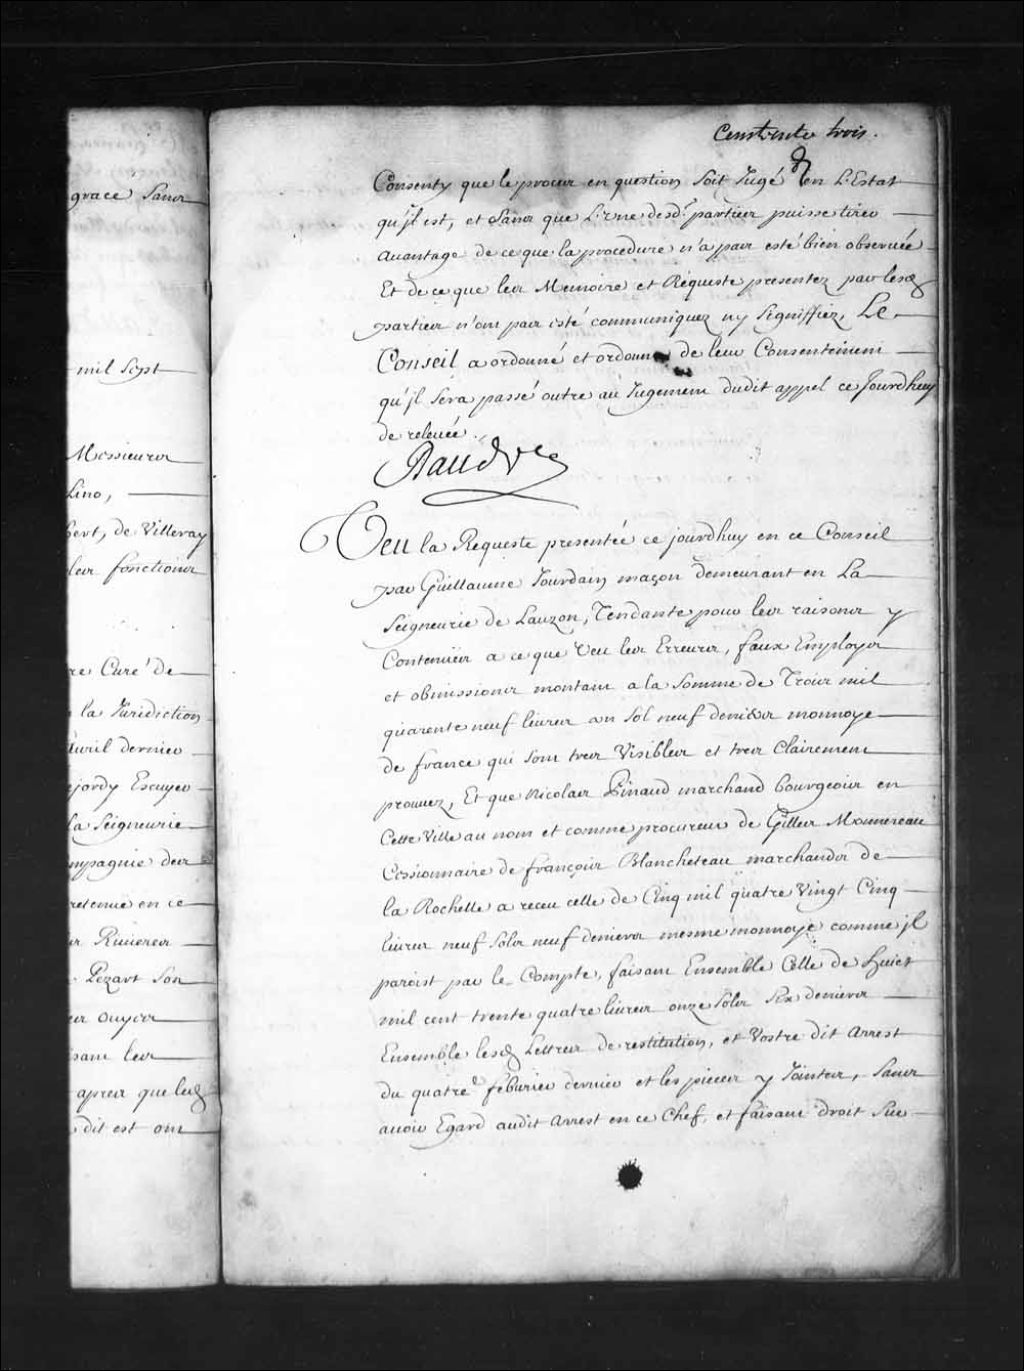 grace Sans
mil Sept
Messieurs
Lino,
bert, de Villeray
leur fonctions
re Curé de
la Juridiction
Auril dernier
jordy Escuyer
la Seigneurie
mpagnie des
retenuë en ce
Riuieres
Pezart Son
ouyes
isant les
apres que led
dit est ont
Cent trente trois.
Consenty que le proces en question soit Jugé en L'Estat
qu'jl est, et Sans que L'Une desd. parties puisse tirer
auantage de ce que la procedure n'a pas esté bien obseruée
Et de ce que les Memoire et Requeste presentez par lesd
parties n'ont pas esté communiquez ny Signiffiez, Le
Conseil a ordonné et ordonne de leur Consentement
qu'jl Sera passé outre au Jugement dudit appel ce Jourdhuy
de releuée.
Veu la Requeste presentée ce jourdhuy en ce Conseil
par Guillaume Jourdain maçon demeurant en La
Seigneurie de Lauzon, Tendante pour les raisons y
Contenuës a ce que Veu les Erreurs, faux Employs
et obmissions montant a la Somme de Trois mil
quarente neuf liures un Sol neuf deniers monnoye
de france qui Sont tres Visibles et tres Clairement
prouuez, Et que Nicolas Pinaud marchand bourgeois en
Cette Ville au nom et comme procureur de Gilles Monnereau
Cessionnaire de françois Blancheteau marchands de
la Rochelle a receu celle de Cinq mil quatre Vingt Cinq
liures neuf Sols neuf deniers mesme monnoye comme jl
paroist par le Compte, faisant Ensemble Celle de huict
mil cent trente quatre liures onze Sols Six deniers
Ensemble lesd Lettres de restitution, et Vostre dit Arrest
du quatre feburier dernier et les pieces y Jointes, Sans
auoir Egard audit Arrest en ce Chef, et faisant droit Sur